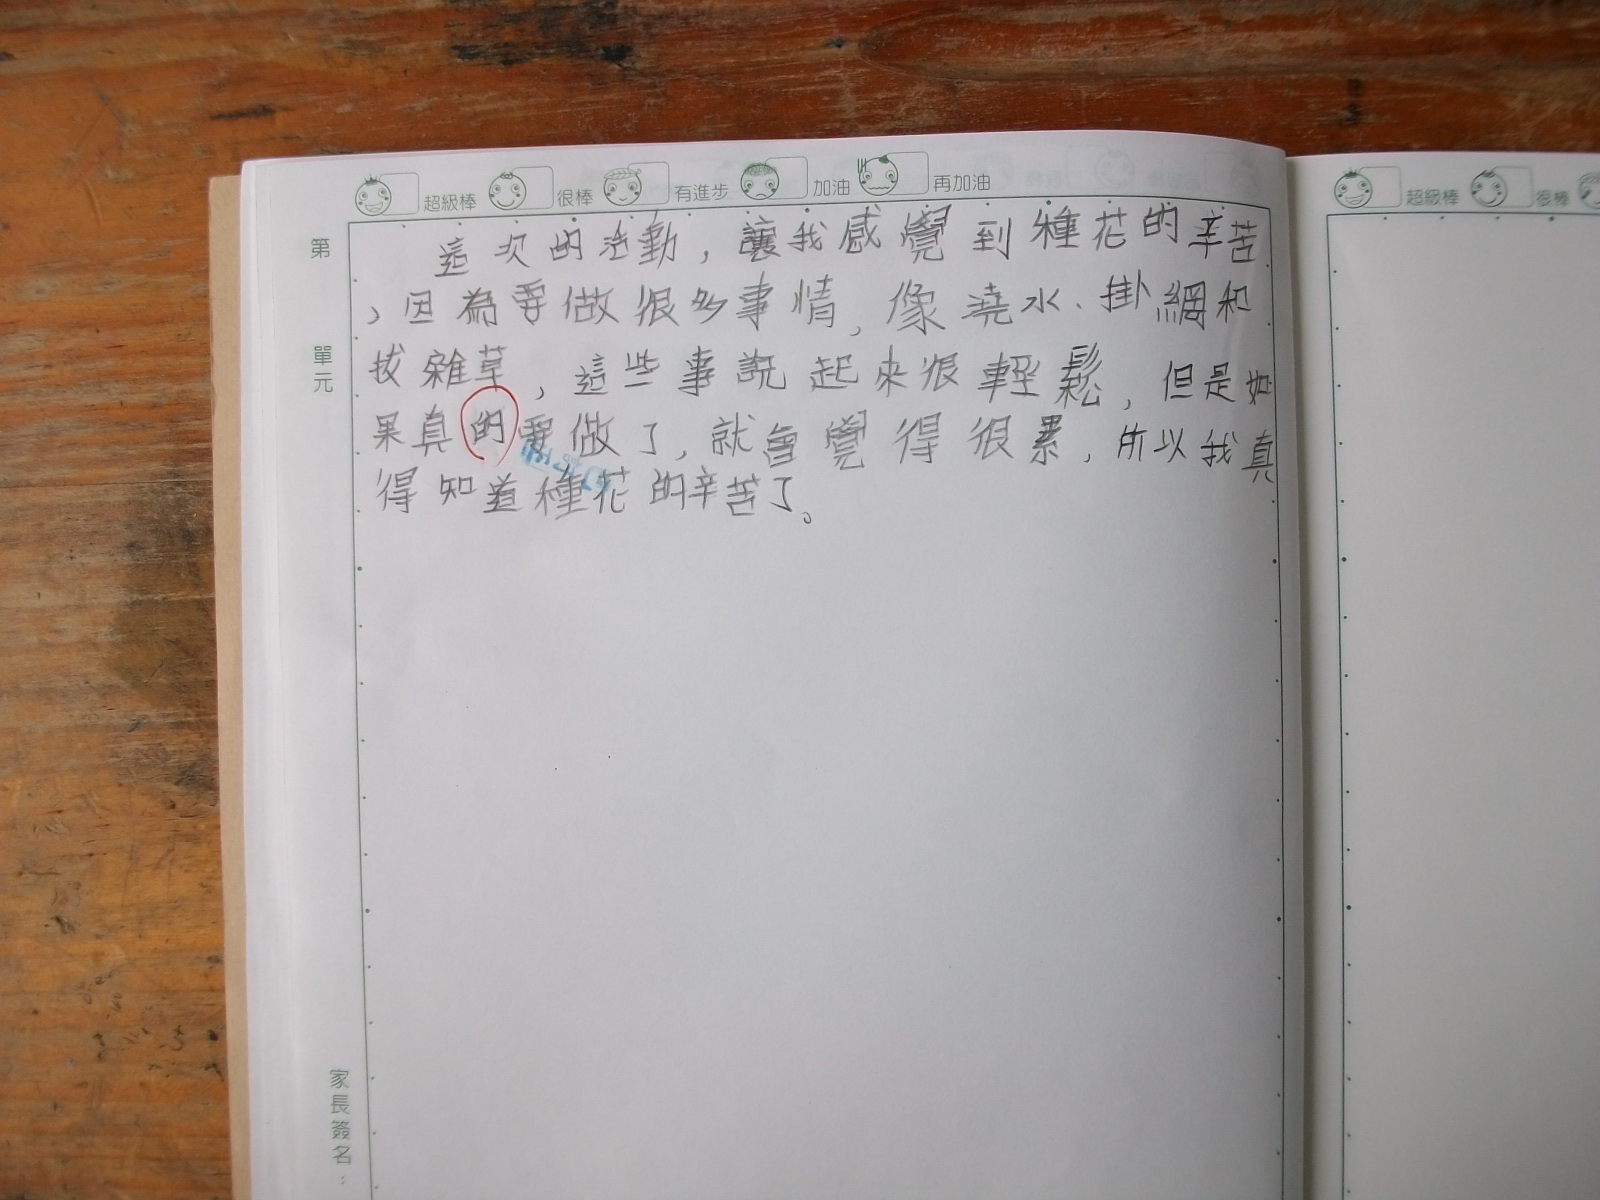 超級棒 很棒 有進步 加油 再加油
超級棒 很棒
第
單元
這次的活動，讓我感覺到種花的辛苦
，因為要做很多事情，像澆水、掛網和
拔雜草，這些事說起來很輕鬆，但是如
果真的要做了，就會覺得很累，所以我真
得知道種花的辛苦了。
家長簽名：